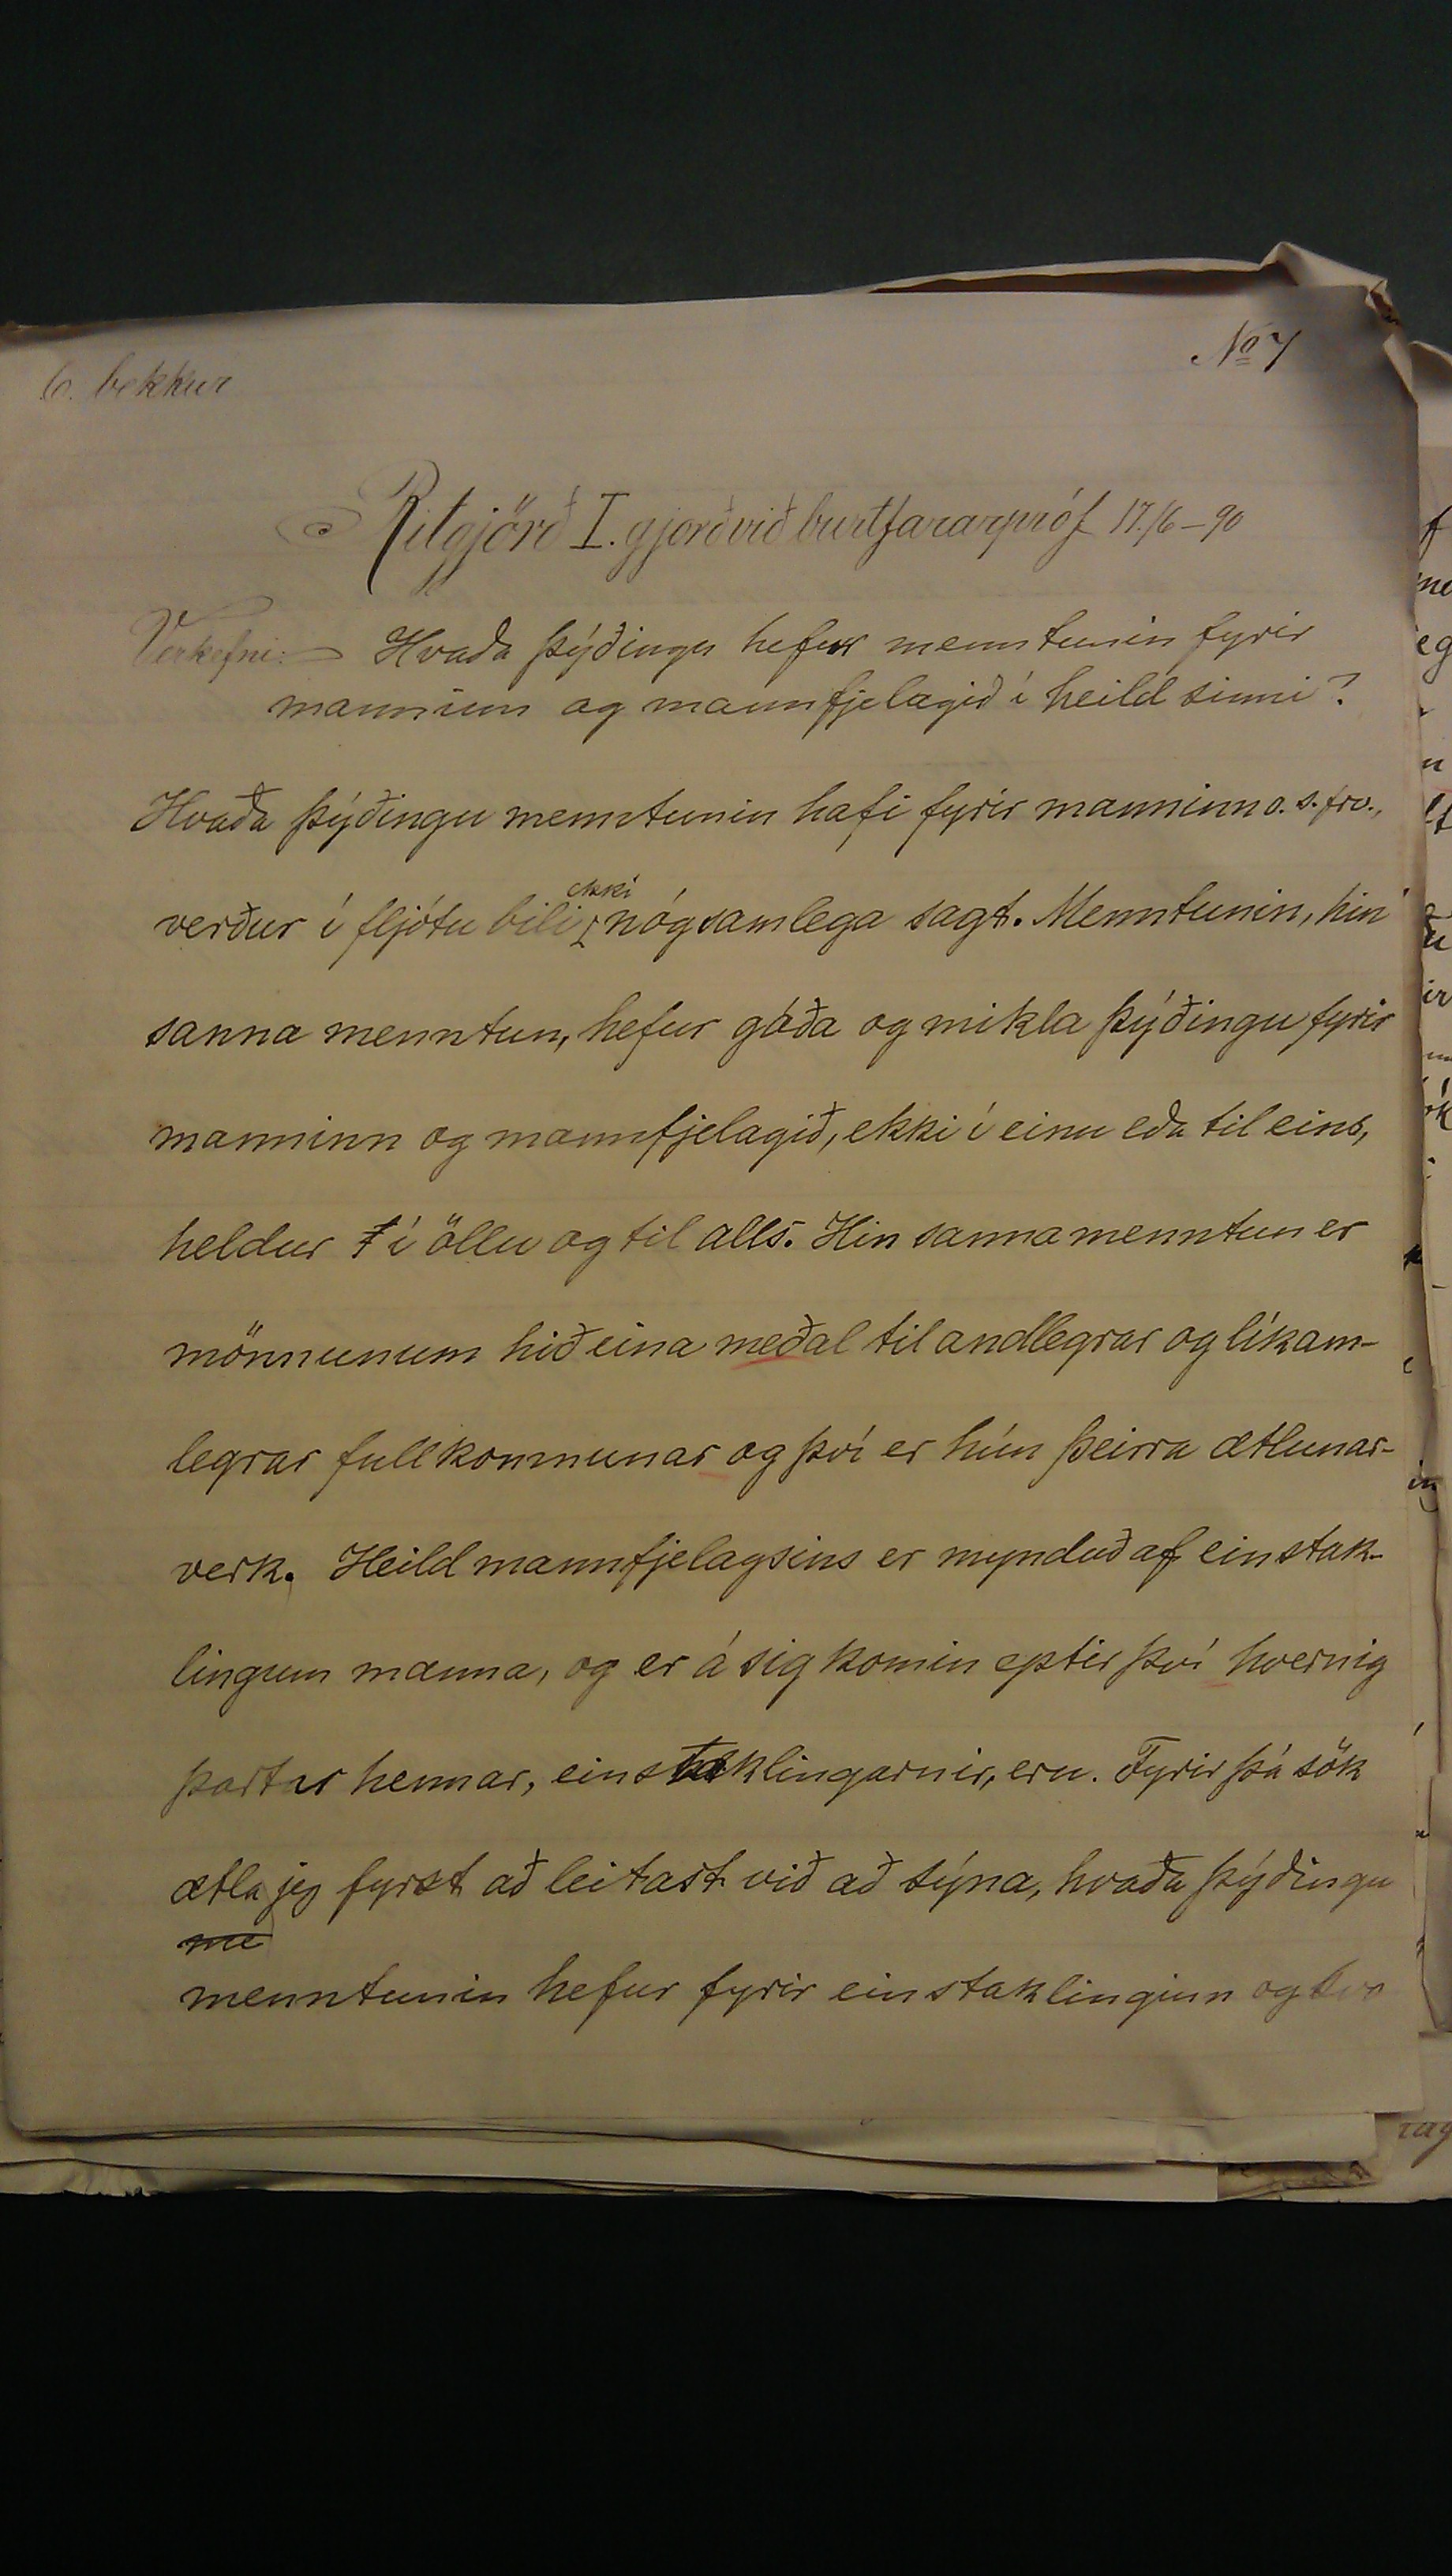 6. bekkur
No 7
Ritgjörð I. gjörð við burtfararpróf 17./6–90
Verkefni: Hvaða þýðingu hefur menntunin fyrir
manninn og mannfjelagið í heild sinni?
Hvaða þýðingu menntunin hafi fyrir manninn o. s. frv.,
verður í fljótu bili ekki nógsamlega sagt. Menntunin, hin
sanna menntun, hefur góða og mikla þýðingu fyrir
manninn og mannfjelagið, ekki í einu eða til eins,
heldur í öllu og til alls. Hin sanna menntun er
mönnunum hið eina meðal til andlegrar og líkam-
legrar fullkomnunar og því er hún þeirra ætlunar-
verk. Heild mannfjelagsins er mynduð af einstak-
lingum manna, og er á sig komin eptir því hvernig
partar hennar, einstaklingarnir, eru. Fyrir þá sök
ætla jeg fyrst að leitast við að sýna, hvaða þýðingu
me
menntunin hefur fyrir einstaklinginn og